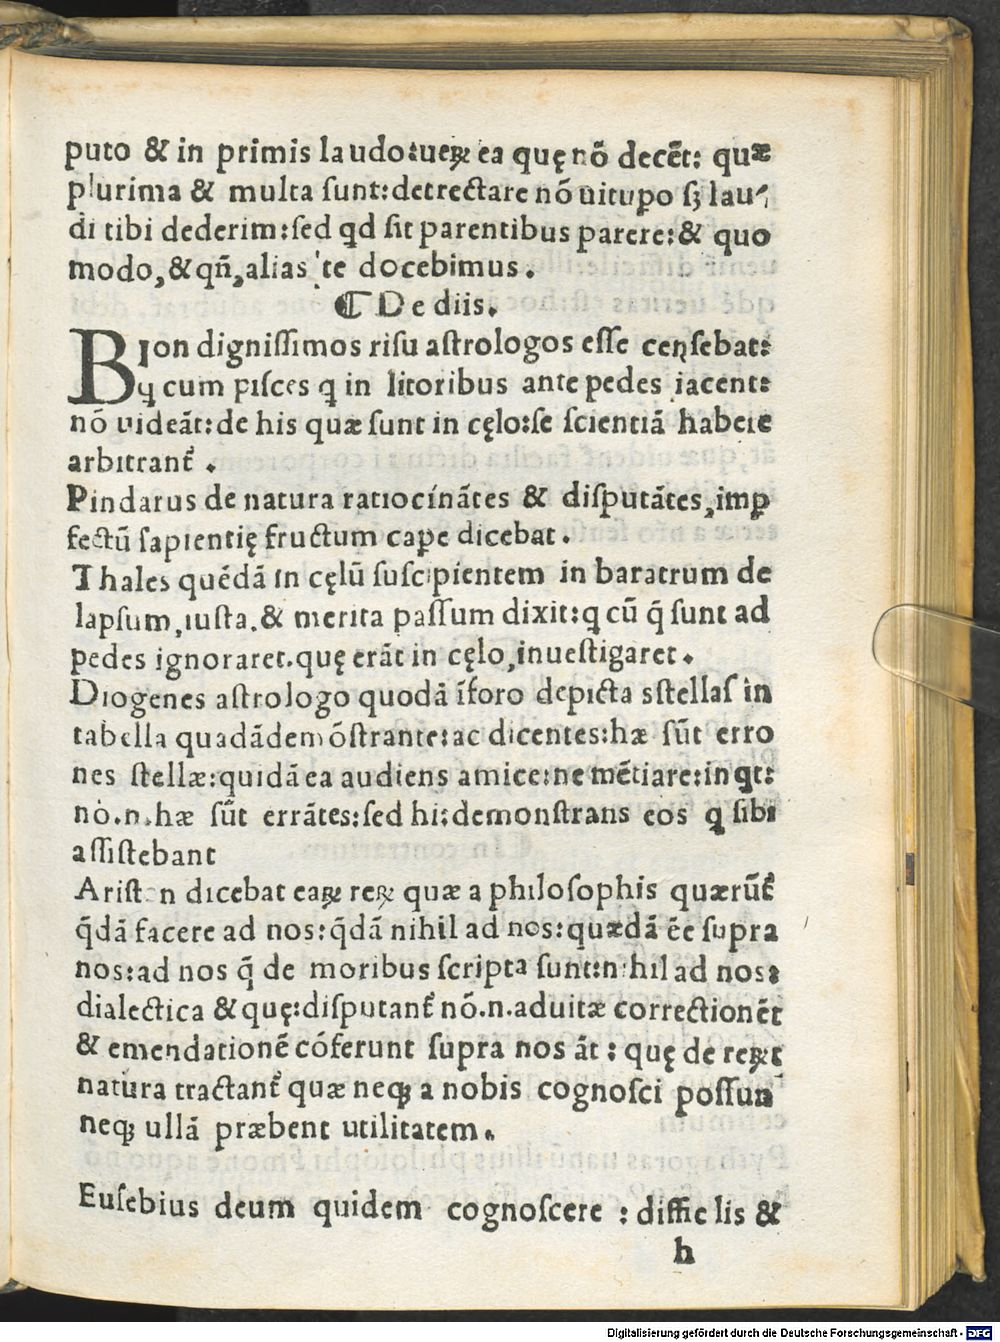 puto & in primis laudo:ueꝝ ea quę nō decēt: quæ
plurima & multa sunt:detrectare nō uitupo sꝫ lau⸗
di tibi dederim:sed qd sit parentibus parere:& quo
modo,&qñ,alias te docebimus.
¶ De diis.
BIon dignissimos risu astrologos esse censebat:
ꝙ cum pisces q in litoribus ante pedes iacent:
nō uideāt:de his quæ sunt in cęlo:se scientiā habere
arbitrant᷑.
Pindarus de natura ratiocinātes & disputātes,imꝑ
fectū sapientię fructum capē dicebat.
Thales quēdā in cęlū suscipientem in baratrum de
lapsum,iusta,& merita passum dixit:q cū q̄ sunt ad
pedes ignoraret.quę erāt in cęlo,inuestigaret.
Diogenes astrologo quodā īforo depicta sstellas in
tabella quadādemōstrante:ac dicentes:hæ sūt erro
nes stellæ:quidā ea audiens amice:ne mētiare:inqt:
nō.n.hæ sūt errātes:sed hi:demonstrans eos q sibi
assistebant
Ariston dicebat eaꝝ reꝝ quæ a philosophis quærūt᷑
q̄dā facere ad nos:q̄dā nihil ad nos:quædā ēe supra
nos:ad nos q̄ de moribus scripta sunt:nihil ad nos:
dialectica & quę:disputant᷑ nō.n.aduitæ correctionēt
& emendationē cōferunt supra nos āt: quę de reꝝt
natura tractant᷑ quæ neqꝫ a nobis cognosci possun
neqꝫ ullā præbent utilitatem.
Eusebius deum quidem cognoscere : difficlis &
h
Digitalisierung gefördert durch die Deutsche Forschungsgemeinschaft - DFG